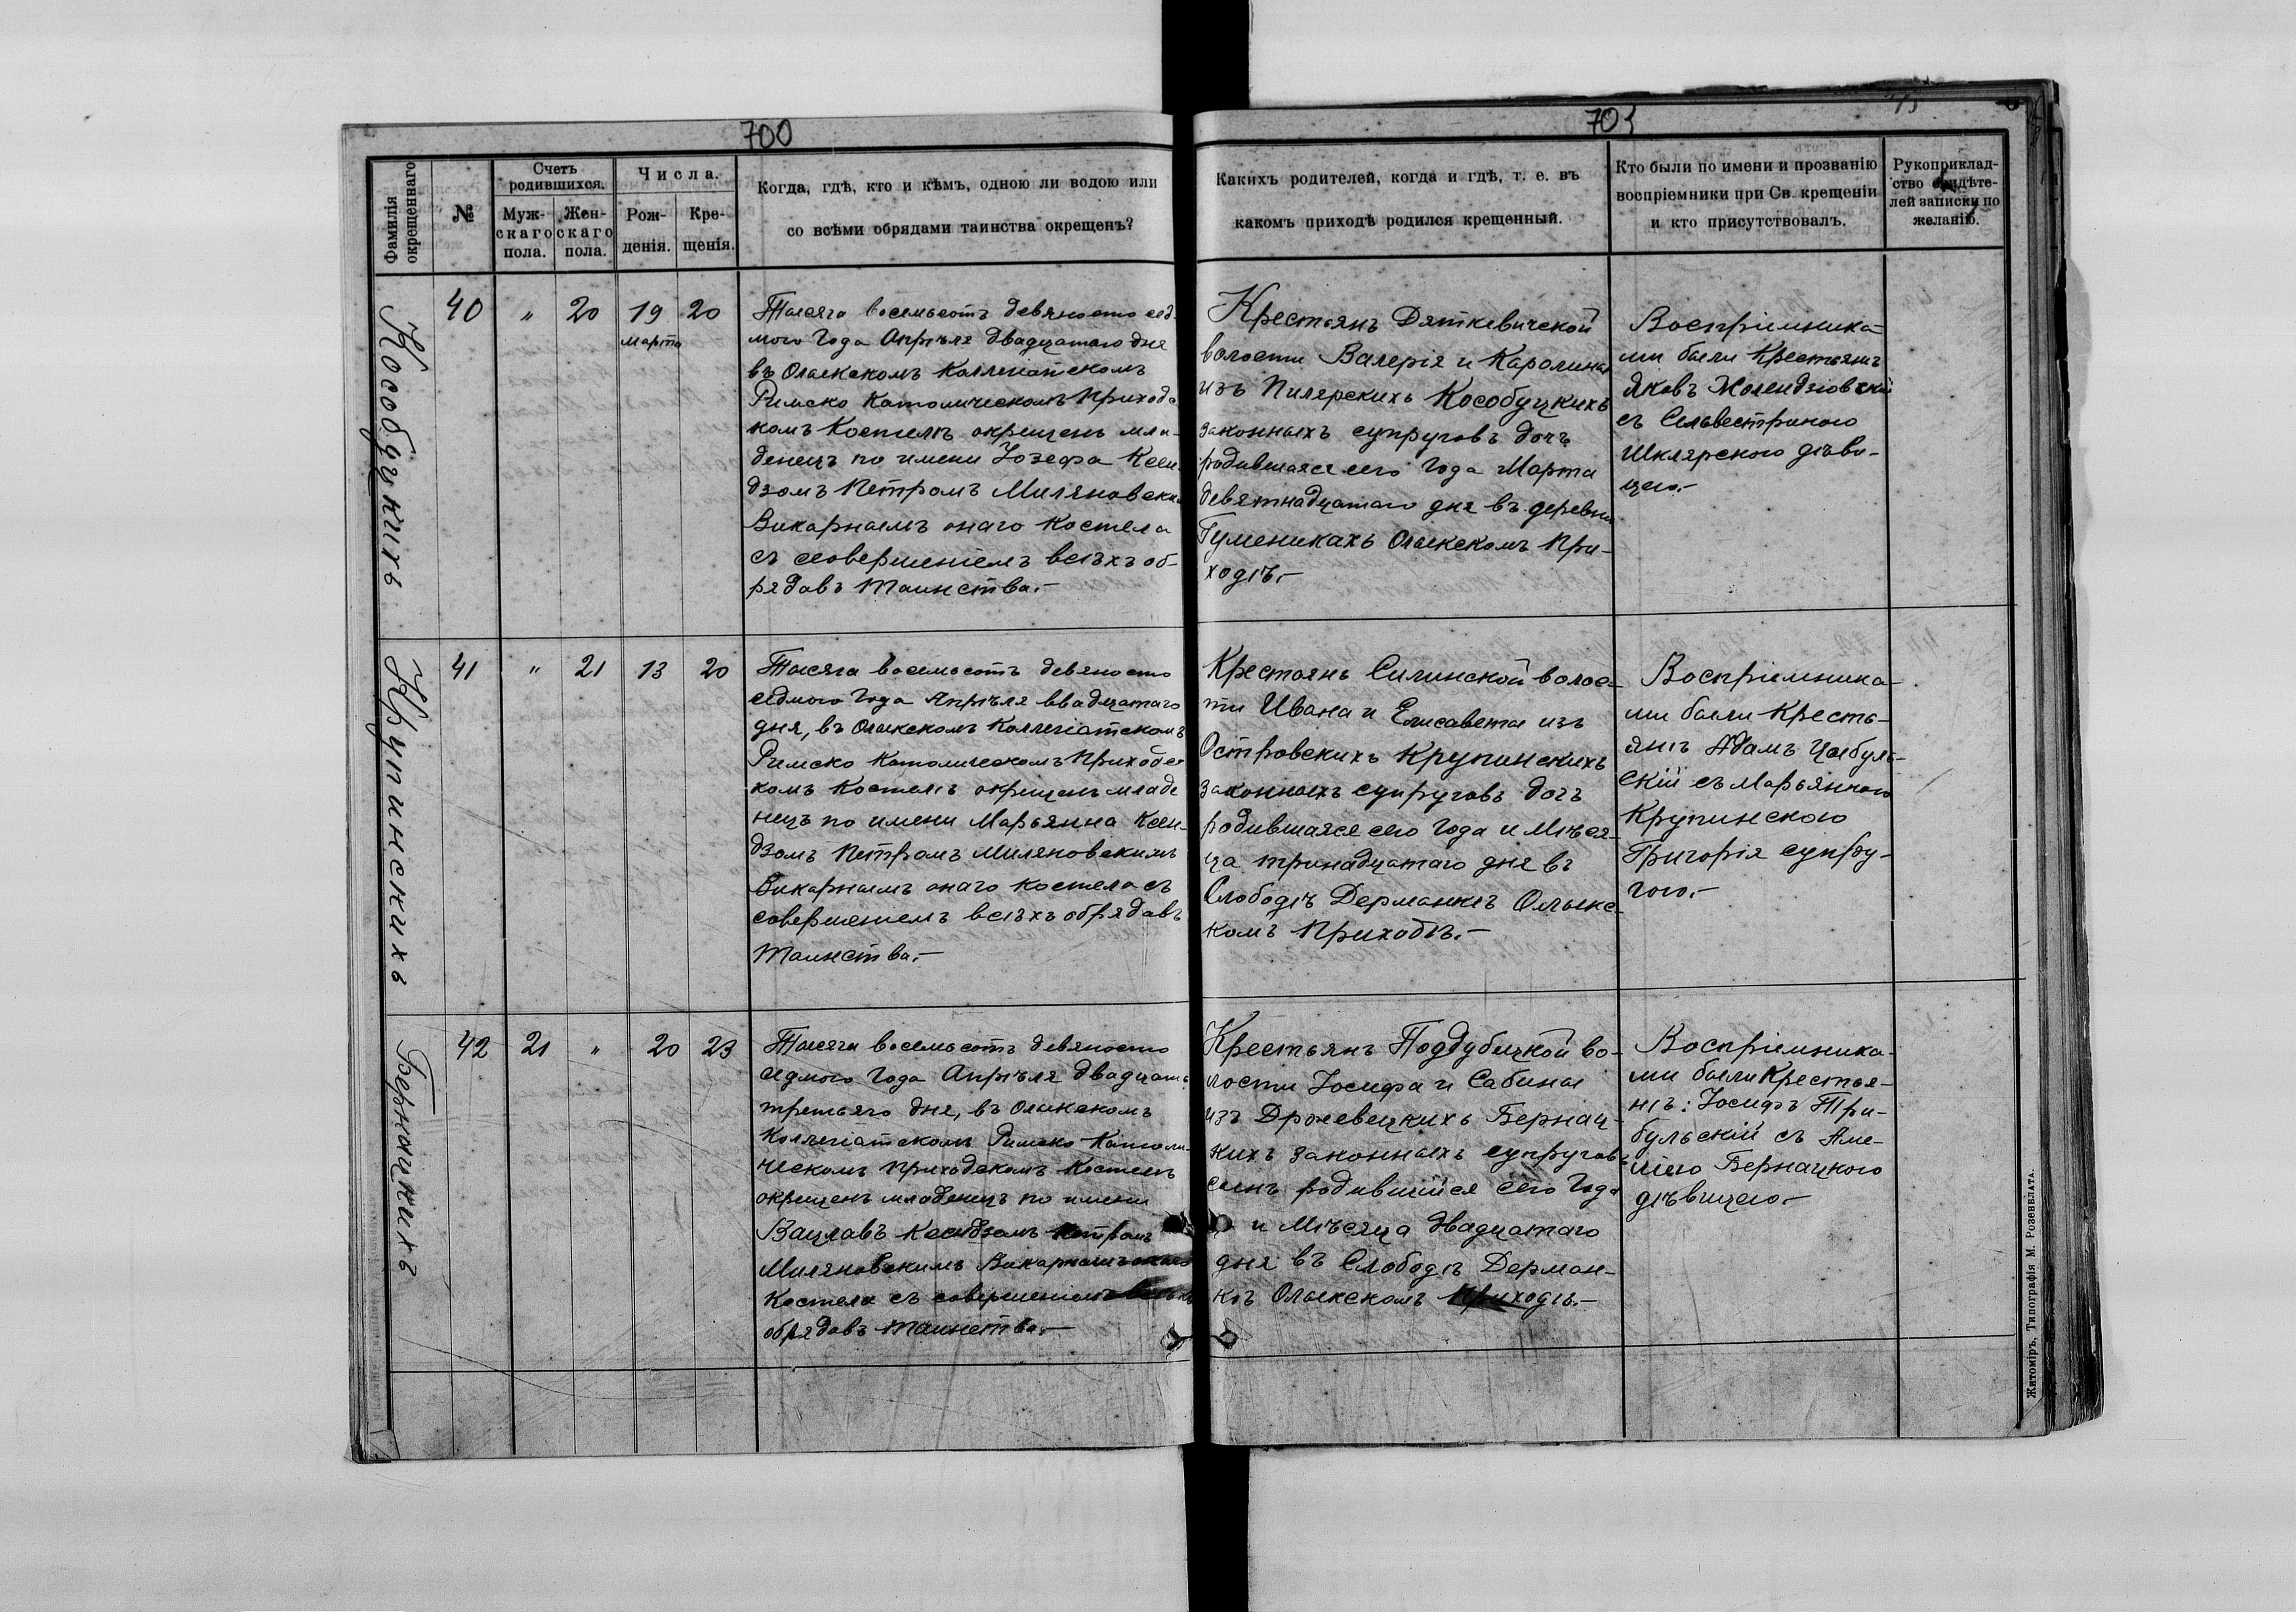 700
Фамилія окрещеннаго
№
Счетъ родившихся.
Мужскаго пола.
Женскаго пола.
Числа.
Рожденія.
Крещенія.
Когда, гдѣ, кто и кѣмъ, одною ли водою или
со всѣми обрядами таинства окрещенъ?
Кособуцкихъ
40
"
20
19
Марта
20
Тысяча восемьсотъ девяносто сед-
мого Года Апрѣля двадцатаго дня
въ Олыкскомъ Коллегіатскомъ
Римско Католическомъ Приходс
комъ Костелѣ окрещенъ мла-
денецъ по имени Іозефа Ксен-
дзомъ Петромъ Миляновски
Викарнымъ онаго Костела
съ совершеніемъ всѣхъ об-
рядовъ Таинства.-
Крупинскихъ
41
"
21
13
20
Тысяча восемьсотъ девяносто
седмого Года Апрѣля двадцатаго
дня, въ Олыкскомъ Коллегіатскомъ
Римско Католическомъ Приходс
комъ Костелѣ окрещенъ младе
нецъ по имени Марьянна Ксен-
дзомъ Петромъ Миляновскимъ
Викарнымъ онаго Костела съ
совершеніемъ всѣхъ обрядовъ
Таинства.-
Бернацкихъ
42
21
"
20
23
Тысяча восемьсотъ девяносто
седмого Года Апрѣля двадцать
третьяго дня, въ Олыкскомъ
Коллегіатскомъ Римско Католи-
ческомъ Приходскомъ Костелѣ
окрещенъ младенецъ по имени
Вацлавъ Ксендзомъ Петромъ
Миляновскимъ Викарнымъ онаго
Костела съ совершеніемъ всѣхъ
обрядовъ Таинства.-
701
Какихъ родителей, когда и гдѣ, т. е. въ
какомъ приходѣ родился крещенный.
Кто были по имени и прозванію
воспріемники при Св. крещеніи
и кто присутствовалъ.
Рукоприклад-
ство свидѣте-
лей записки по
желанію.
Крестьянъ Дяткевичской
волости Валерія и Каролины
изъ Пилярскихъ Кособуцкихъ
законныхъ супруговъ дочъ
родившаяся сего Года Марта
девятнадцатаго дня въ деревни
Гуменикахъ Олыкскомъ При-
ходѣ.-
Воспріемника-
ми были Крестьянѣ
Яковъ Молендзіовскій
съ Сельвестриною
Шклярскою дѣви-
цею.-
Крестьянъ Силинской волос-
ти Ивана и Елисаветы изъ
Островскихъ Крупинскихъ
законныхъ супруговъ дочъ
родившаяся сего Года и Мѣся-
ца тринадцатаго дня въ
Слободѣ Дерманкѣ Олыкс-
комъ Приходѣ.-
Воспріемника-
ми были Кресть-
янѣ Адамъ Цыбуль-
скій съ Марьянною
Крупинскою
Григорія супру-
гою.-
Крестьянъ Поддубецкой во-
лости Іосифа и Сабины
изъ Држевецкихъ Бернац-
кихъ законныхъ супруговъ
сынъ родившійся сего Года
и Мѣсяца двадцатаго
дня въ Слободѣ Дерман-
кѣ Олыкскомъ Приходѣ.-
Воспріемника-
ми были Крестья-
нѣ: Іосифъ Три-
бульскій съ Аме-
ліею Бернацкою
дѣвицею.-
Житоміръ, Типографія М. Розенблата.